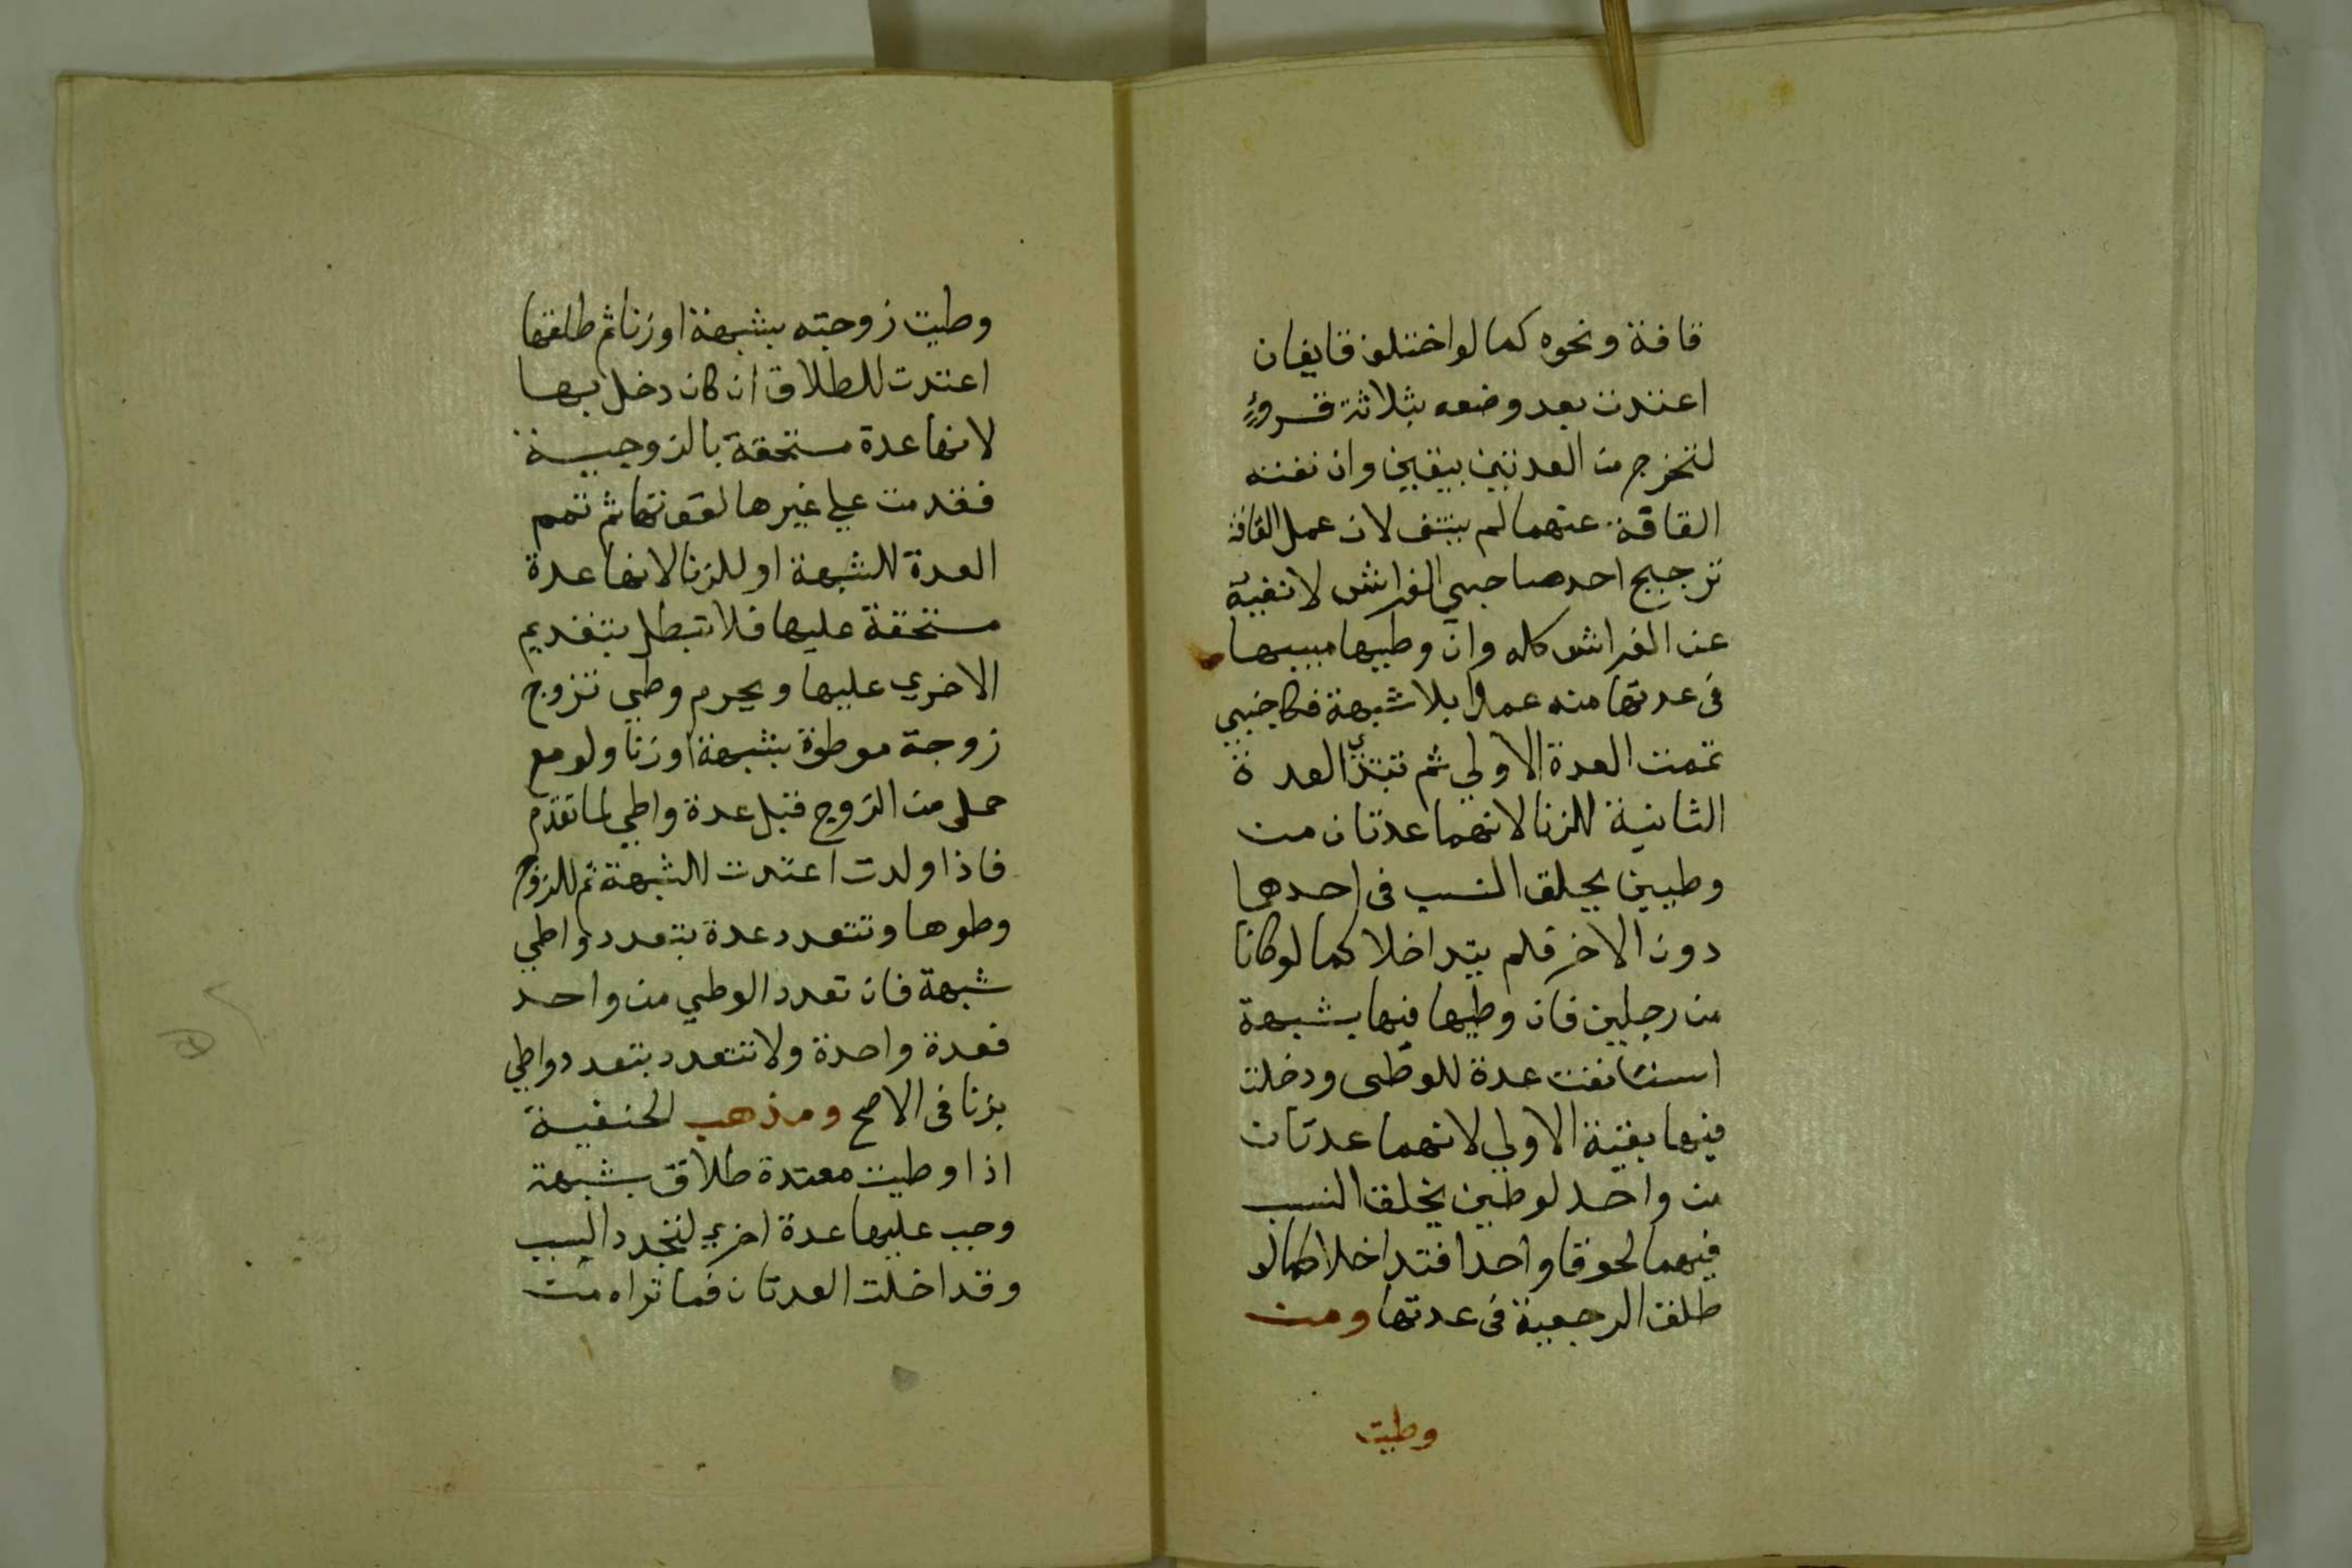 قافة ونحوه كما لو اختلف قايفان
اعتدت بعد وضعه بثلاثة قروءٍ
لتخرج من العدتين بيقين وان نفته
القافة عنهما لم ينتف لان عمل القافة
ترجيح احد صاحبي الفراش لا نفيه
عن الفراش كله وان وطيها مبينها
في عدتها منه عمدا بلا شبهة فكاجنبي
تمت العدة الاولي ثم تبتدي العدة
الثانية للزنا لانهما عدتان من
وطيين يحلق النسب في احدهما
دون الاخر فلم يتداخلا كما لو كانا
من رجلين فان وطيها فيها بشبهة
استانفت عدة للوطي ودخلت
فيها بقية الاولي لانهما عدتان
من واحد لوطين يخلق النسب
فيهما لحوقا واحدا فتداخلا كما لو
طلق الرجعية في عدتها ومن
وطيت
وطيت زوجته بشبهة او زنا ثم طلقها
اعتدت للطلاق ان كان دخل بها
لانها عدة مستحقة بالزوجية
فقدمت علي غيرها لقوتها ثم تتمم
العدة للشبهة او للزنا لانها عدة
مستحقة عليها فلا تبطل بتقديم
الاخري عليها ويحرم وطي تزوج
زوجة موطوة بشبهة او زنا ولو مع
حمل من الزوج قبل عدة واطي لما تقدم
فاذا ولدت اعتدت للشبهة ثم للزوج
وطوها وتتعدد عدة بتعدد واطي
شبهة فان تعدد الوطي من واحد
فعدة واحدة ولا تتعدد بتعدد واطي
بزنا في الاصح ومذهب الحنفية
اذا وطيت معتدة طلاق بشبهة
وجب عليها عدة اخري لتجدد السبب
وقد اخلت العدتان فما تراه من